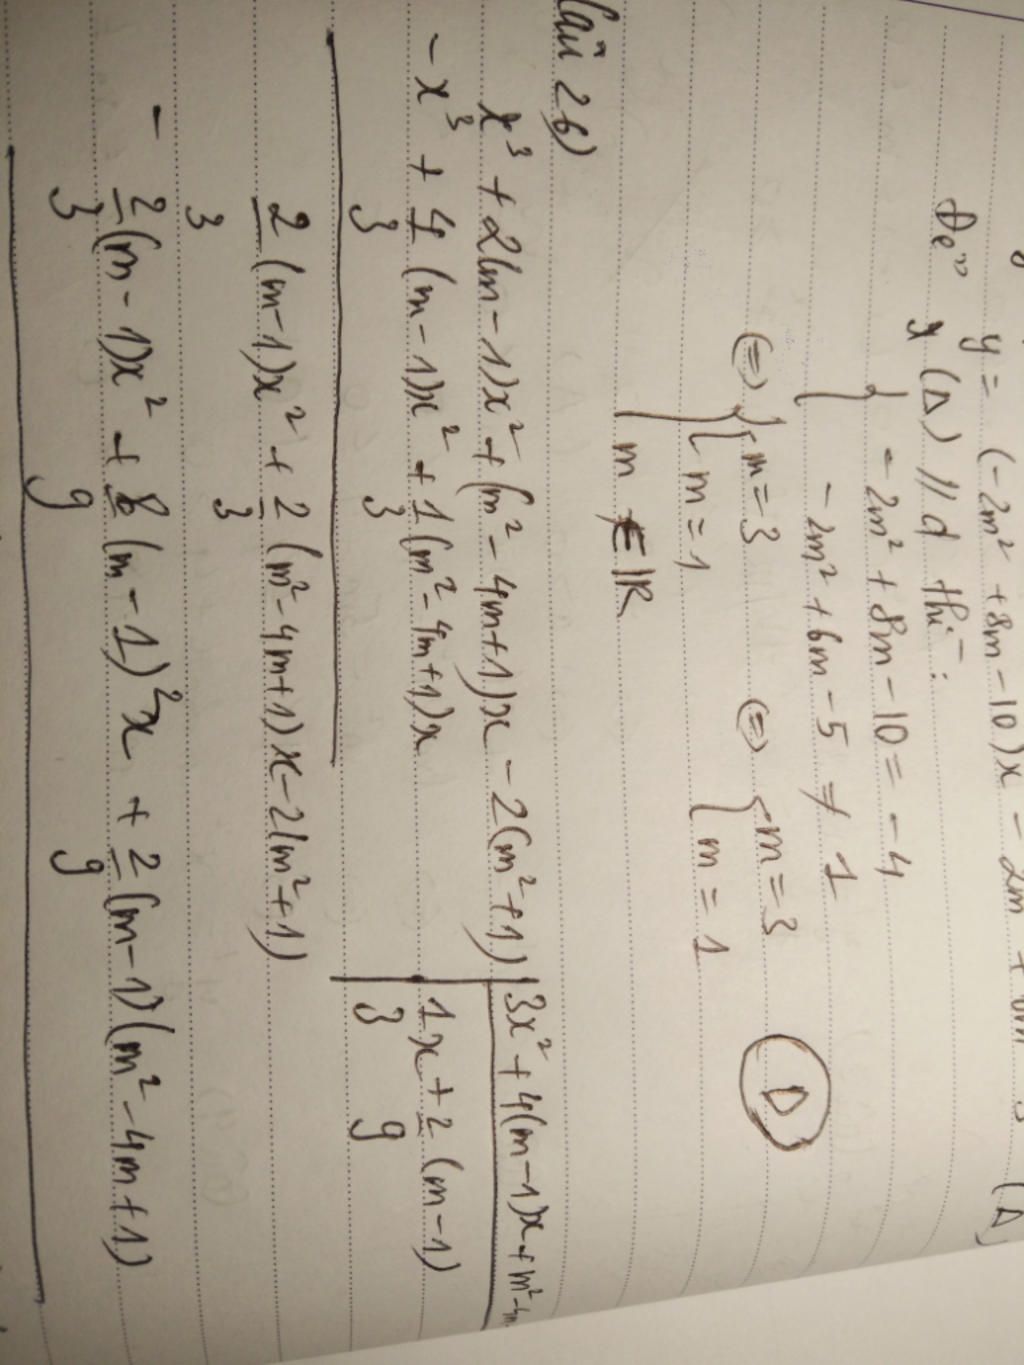 y = (-2m² + 8m - 10)x - 2m² + 6m - 5 (Δ)
Để (Δ) // d thì:
{ -2m² + 8m - 10 = -4
-2m² + 6m - 5 ≠ 1
⇔ { { m = 3 ⇔ { m = 3 D
{ m = 1 { m = 1
m ∈ ℝ
Câu 26)
x³ + 2(m-1)x² + (m² - 4m + 1)x - 2(m² + 1) | 3x² + 4(m-1)x + m² - 4m
- x³ + 4/3 (m-1)x² + 1/3 (m² - 4m + 1)x | 1/3 x + 2/9 (m-1)
2/3 (m-1)x² + 2/3 (m² - 4m + 1)x - 2(m² + 1)
- 2/3 (m-1)x² + 8/9 (m-1)²x + 2/9 (m-1)(m² - 4m + 1)